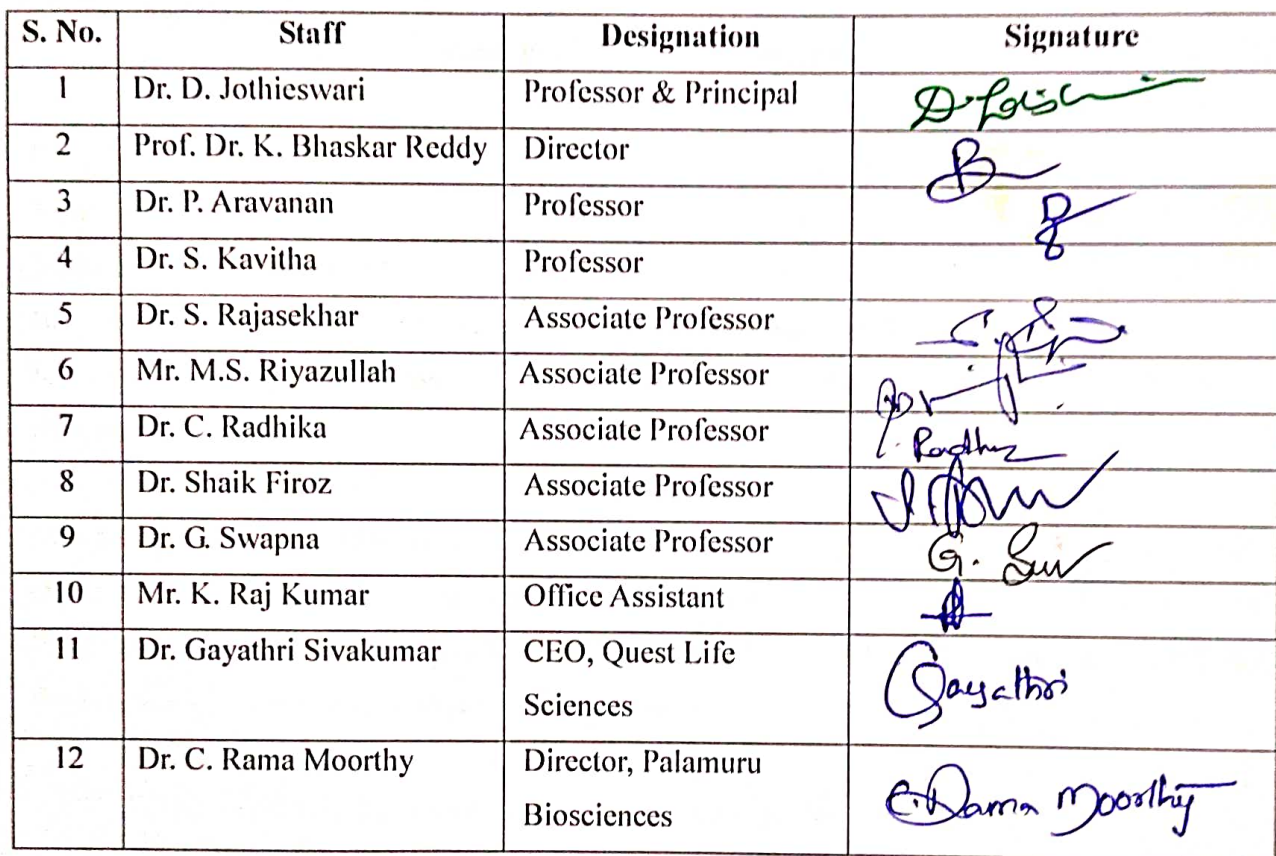 S. No. Staff Designation Signature
1 Dr. D. Jothieswari Professor & Principal
2 Prof. Dr. K. Bhaskar Reddy Director
3 Dr. P. Aravanan Professor
4 Dr. S. Kavitha Professor
5 Dr. S. Rajasekhar Associate Professor
6 Mr. M.S. Riyazullah Associate Professor
7 Dr. C. Radhika Associate Professor
8 Dr. Shaik Firoz Associate Professor
9 Dr. G. Swapna Associate Professor G.
10 Mr. K. Raj Kumar Office Assistant
11 Dr. Gayathri Sivakumar CEO, Quest Life
Sciences Gayathri
12 Dr. C. Rama Moorthy Director, Palamuru
Biosciences C. Rama Moorthy